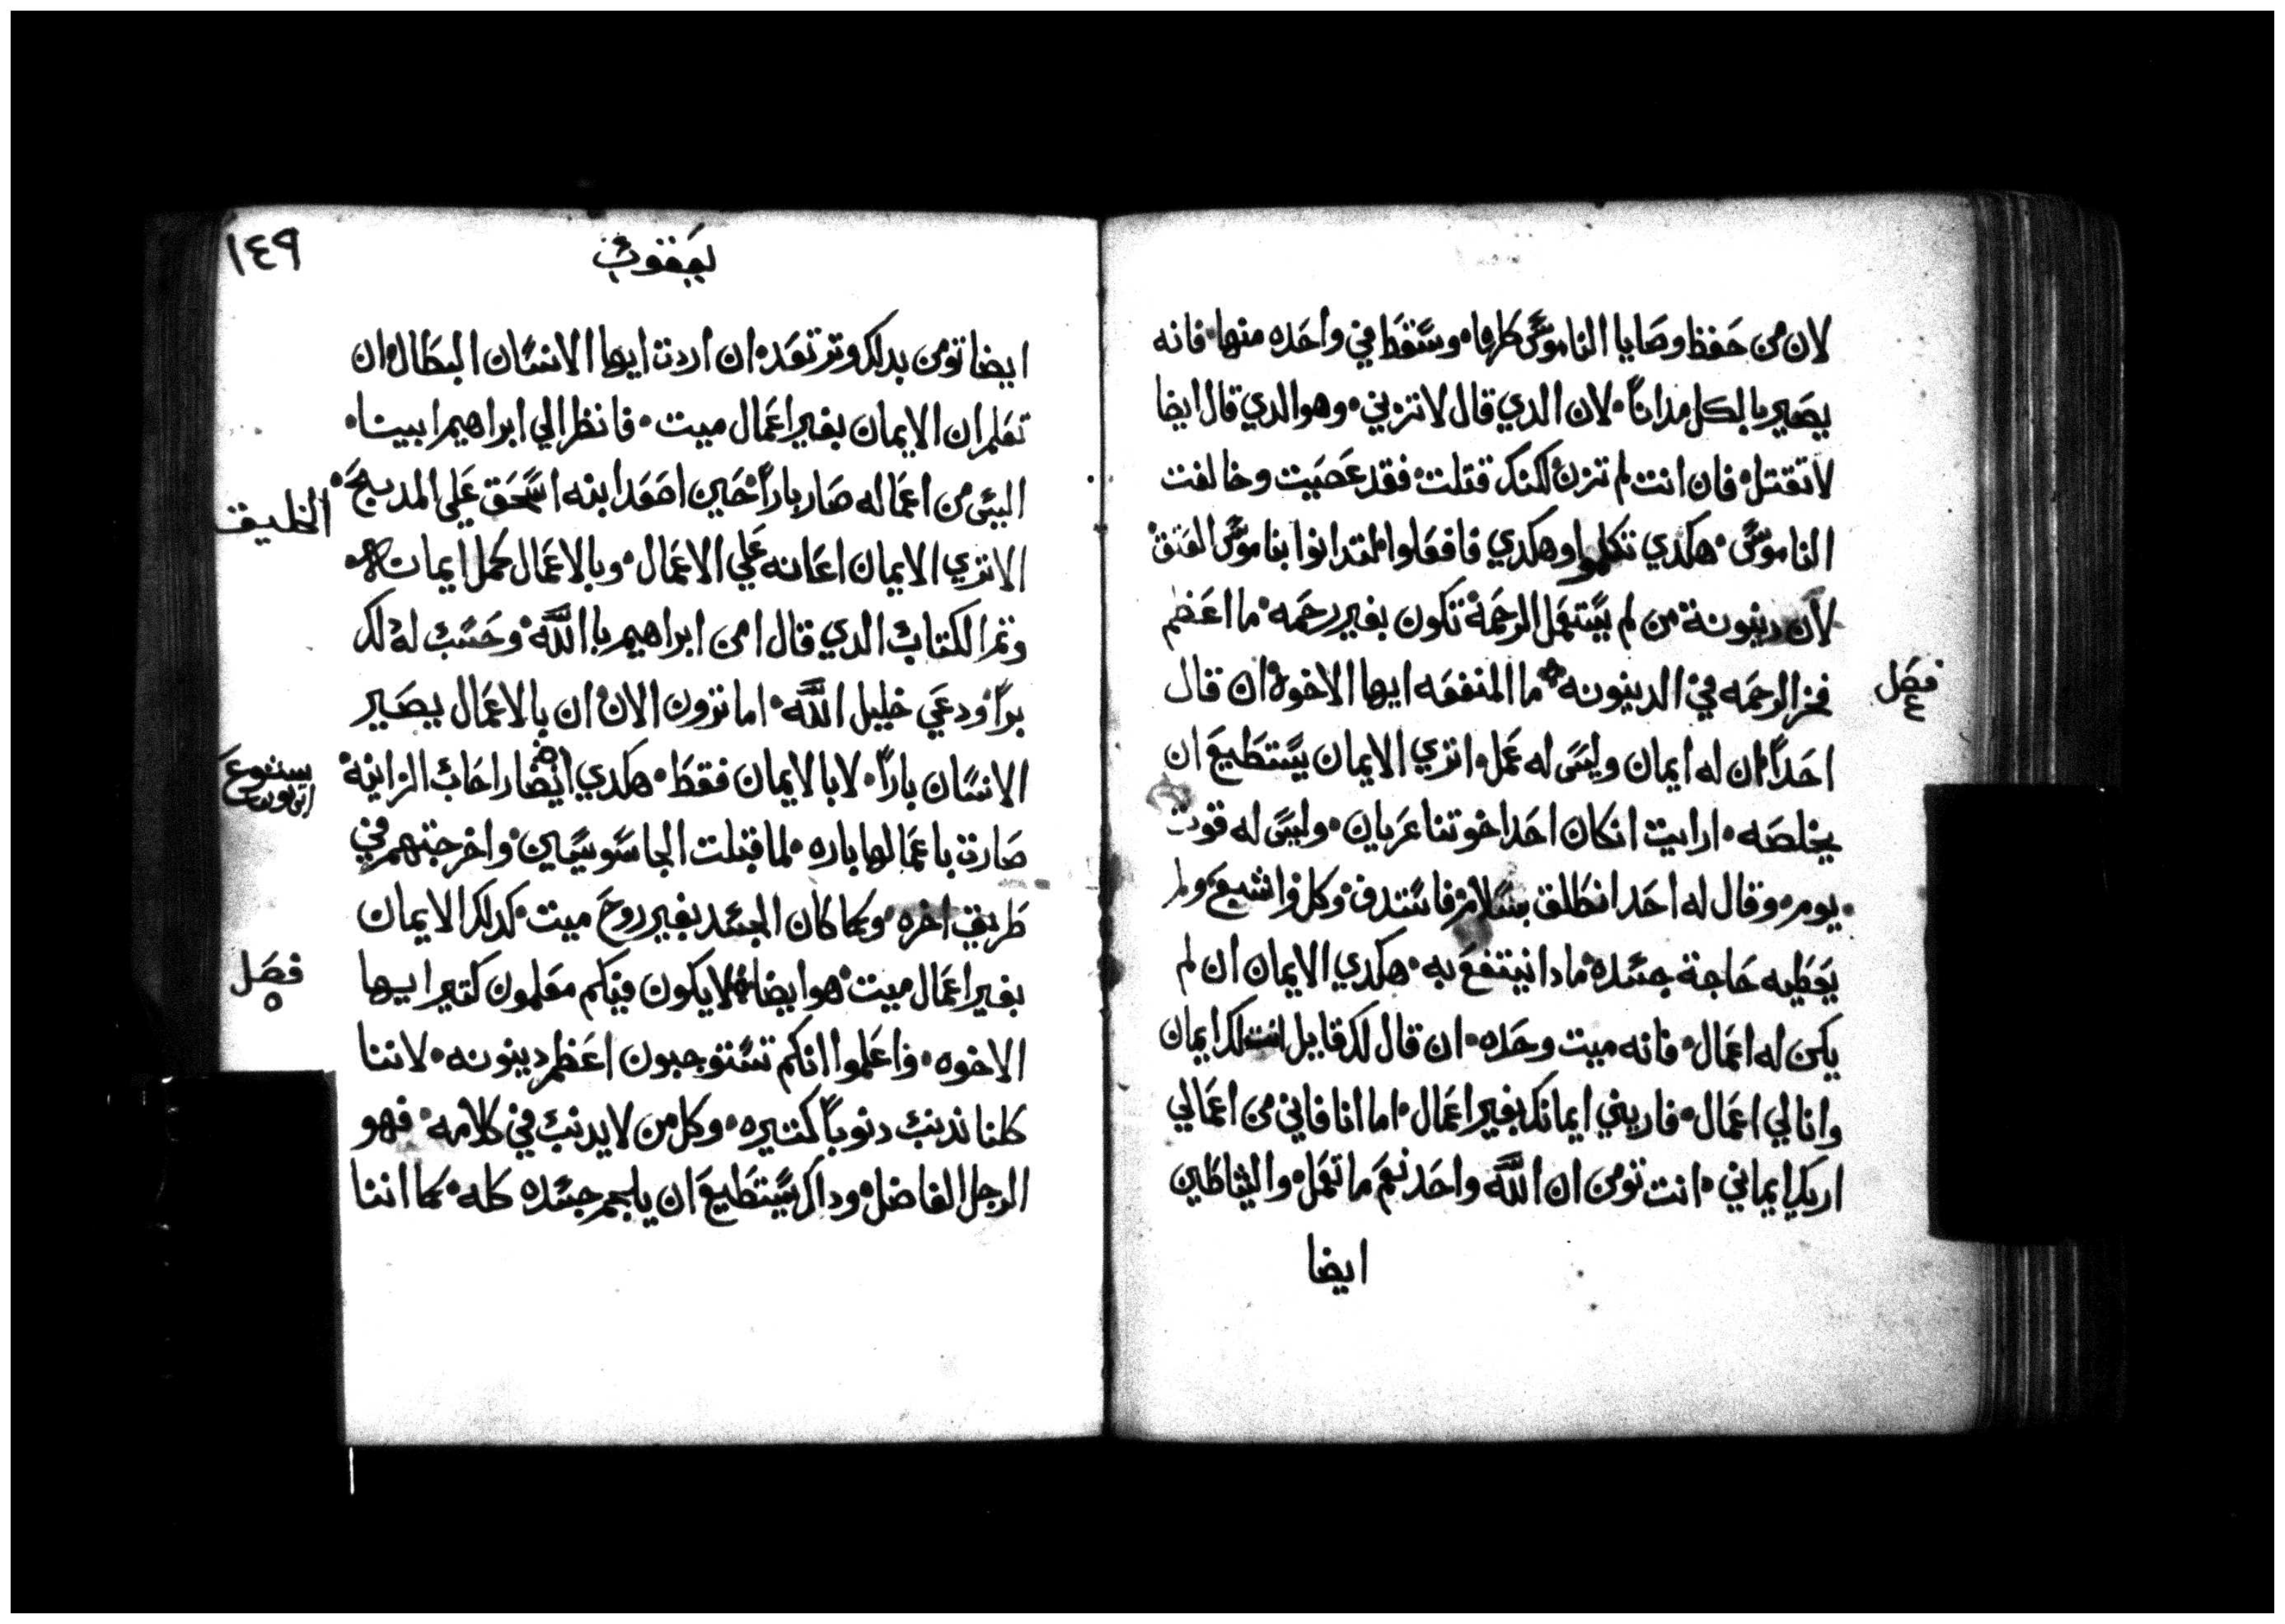 لان من حفظ وصايا الناموس كلها وسقط في واحده منها فانه
يصير بالكل مداناً لان الدي قال لا تزني وهو الدي قال ايضا
لا تقتل فان انت لم تزن لكنك قتلت فقد عصيت وخالفت
الناموس هكدي تكلموا وهكدي فافعلوا لتدانوا بناموس العتق
لان دينونة من لم يستعمل الرحمة تكون بغير رحمه ما اعظم
فخر الرحمه في الدينونه ما المنفعه ايها الاخوه ان قال
فصل ٤
احداً ان له ايمان وليس له عمل اتري الايمان يستطيع ان
يخلصه ارايت ان كان احد اخوتنا عريان وليس له قوت
يوم وقال له احد انطلق بسلام فاستدف وكل واشبع ولم
يعطيه حاجة جسده مادا ينتفع به هكدي الايمان ان لم
يكن له اعمال فانه ميت وحده ان قال لك قايل انت لك ايمان
وانا لي اعمال فاريني ايمانك بغير اعمال اما انا فاني من اعمالي
اريك ايماني انت تومن ان الله واحد نعم ما تعمل والشياطين
ايضا
١٤٩
يعقوب
ايضا تومن بدلك وترتعد ان اردت ايها الانسان البطال ان
تعلم ان الايمان بغير اعمال ميت فانظر الي ابراهيم ابينا
اليس من اعماله صار باراً حين اصعد ابنه اسحق علي المدبح
الخليقه
الا تري الايمان اعانه علي الاعمال وبالاعمال كمل ايمانه
وتم الكتاب الدي قال امن ابراهيم بالله وحسب له دلك
براً ودعي خليل الله اما ترون الان ان بالاعمال يصير
الانسان باراً لا بالايمان فقط هكدي ايضا راحاب الزانية
يشوع ابن نون
صارت باعمالها باره لما قبلت الجاسوسين واخرجتهم في
طريق اخره وكما كان الجسد بغير روح ميت كدلك الايمان
بغير اعمال ميت هو ايضا لا يكون فيكم معلمون كتير ايها
فصل ٥
الاخوه واعلموا انكم تستوجبون اعظم دينونه لاننا
كلنا ندنب دنوباً كتيره وكل من لا يدنب في كلامه فهو
الرجل الفاضل وداك يستطيع ان يلجم جسده كله كما اننا